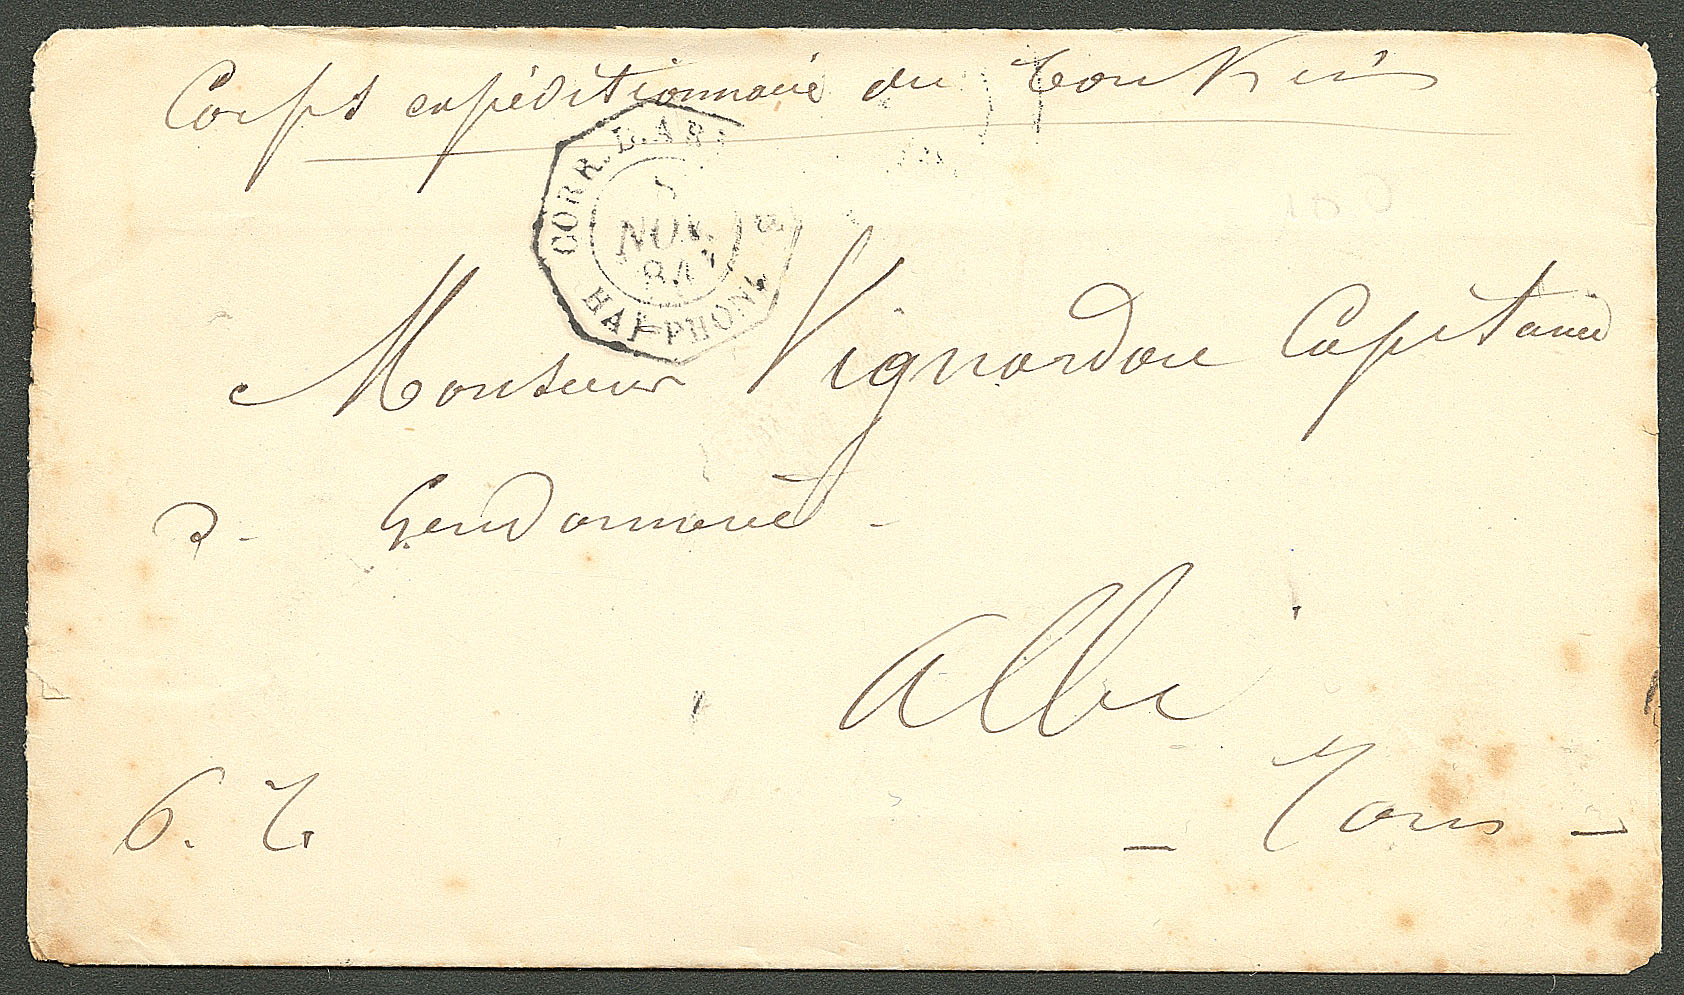 Corps expéditionnaire du Tonkin
CORR. D. AR
NOV.
84
HAI-PHONG
Monsieur Vignardou Capitaine
de Gendarmerie
Albi
Tarn